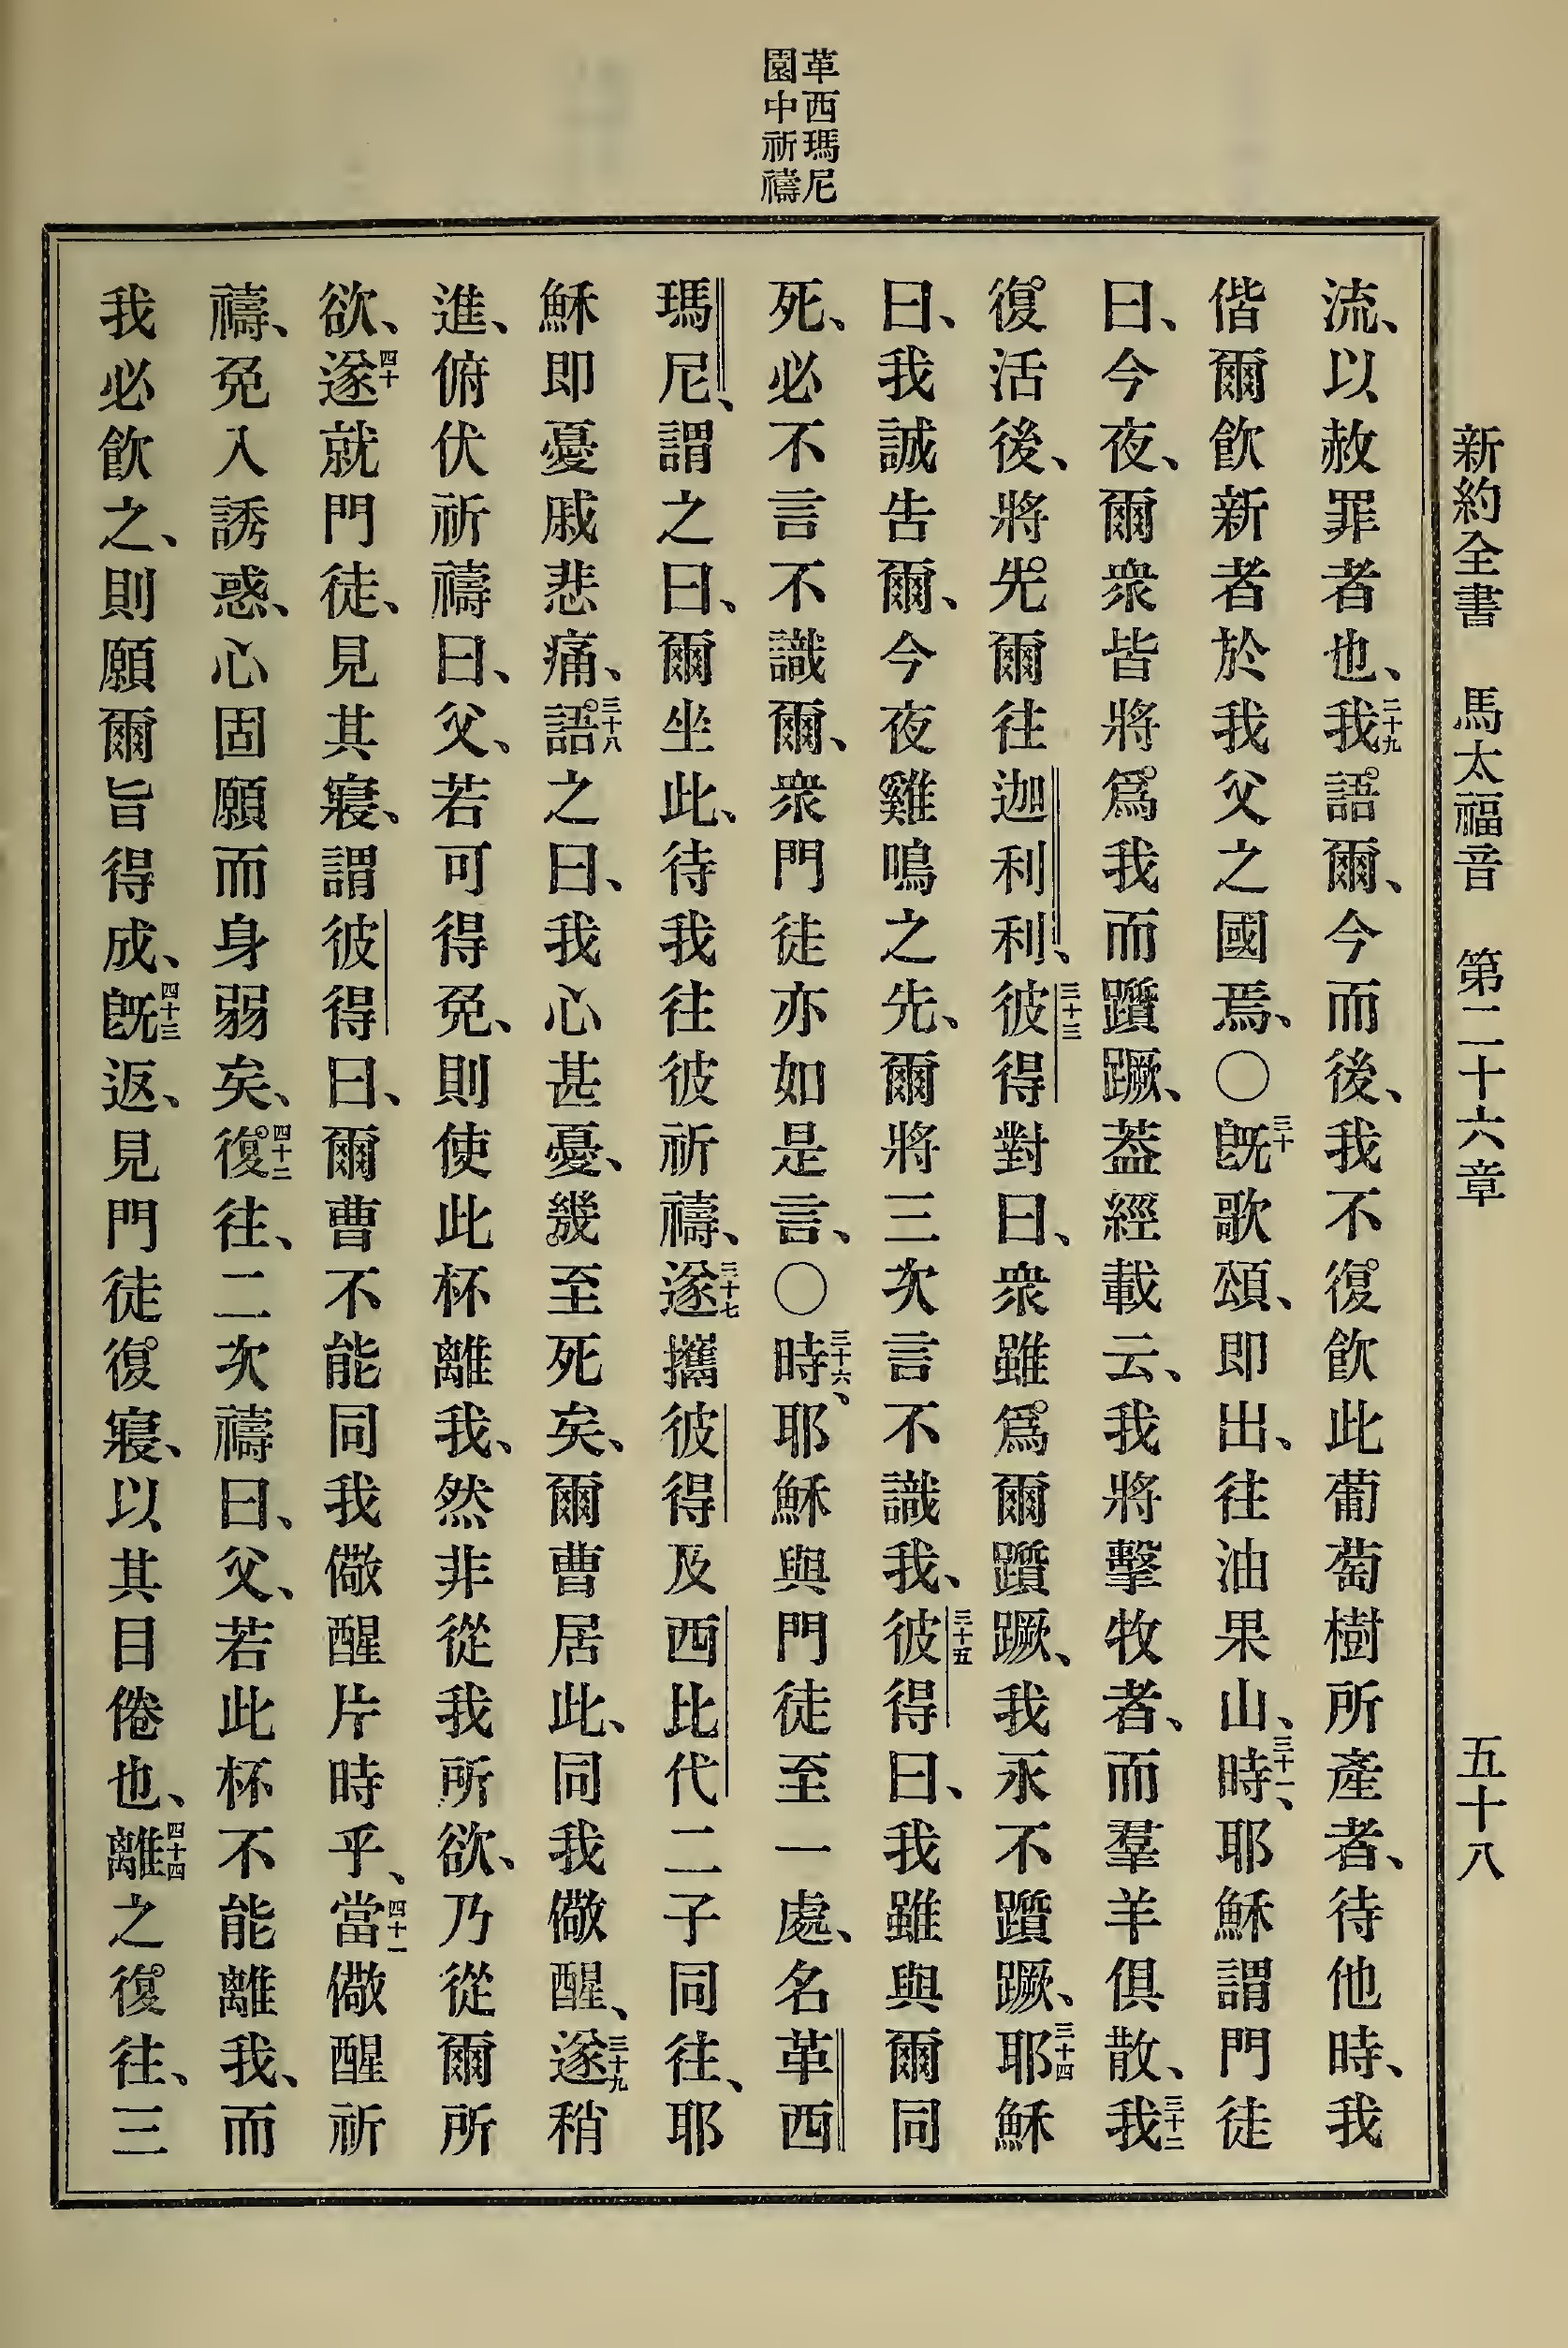 新約全書 馬太福音 第二十六章 五十八
革西瑪尼
園中祈禱
流、以赦罪者也、二十九我語爾、今而後、我不復飲此葡萄樹所產者、待他時、我
偕爾飲新者於我父之國焉、〇三十既歌頌、即出、往油果山、三十一時、耶穌謂門徒
曰、今夜、爾衆皆將爲我而躓蹶、蓋經載云、我將擊牧者、而羣羊俱散、三十二我
復活後、將先爾往迦利利、三十三彼得對曰、衆雖爲爾躓蹶、我永不躓蹶、三十四耶穌
曰、我誠告爾、今夜雞鳴之先、爾將三次言不識我、三十五彼得曰、我雖與爾同
死、必不言不識爾、衆門徒亦如是言、〇三十六時、耶穌與門徒至一處、名革西
瑪尼、謂之曰、爾坐此、待我往彼祈禱、三十七遂攜彼得及西比代二子同往、耶
穌即憂戚悲痛、三十八語之曰、我心甚憂、幾至死矣、爾曹居此、同我儆醒、三十九遂稍
進、俯伏祈禱曰、父、若可得免、則使此杯離我、然非從我所欲、乃從爾所
欲、四十遂就門徒、見其寢、謂彼得曰、爾曹不能同我儆醒片時乎、四十一當儆醒祈
禱、免入誘惑、心固願而身弱矣、四十二復往、二次禱曰、父、若此杯不能離我、而
我必飲之、則願爾旨得成、四十三既返、見門徒復寢、以其目倦也、四十四離之復往、三